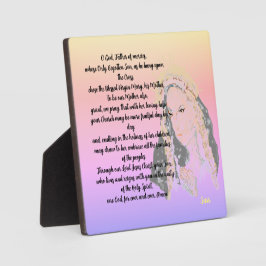 O God, Father of mercy,
whose Only Begotten Son, as he hung upon
the Cross,
chose the Blessed Virgin Mary, his Mother,
to be our Mother also,
grant, we pray, that with her loving help
your Church may be more fruitful day by
day
and, exulting in the holiness of her children,
may draw to her embrace all the families
of the peoples.
Through our Lord Jesus Christ, your Son,
who lives and reigns with you in the unity
of the Holy Spirit,
one God, for ever and ever. Amen